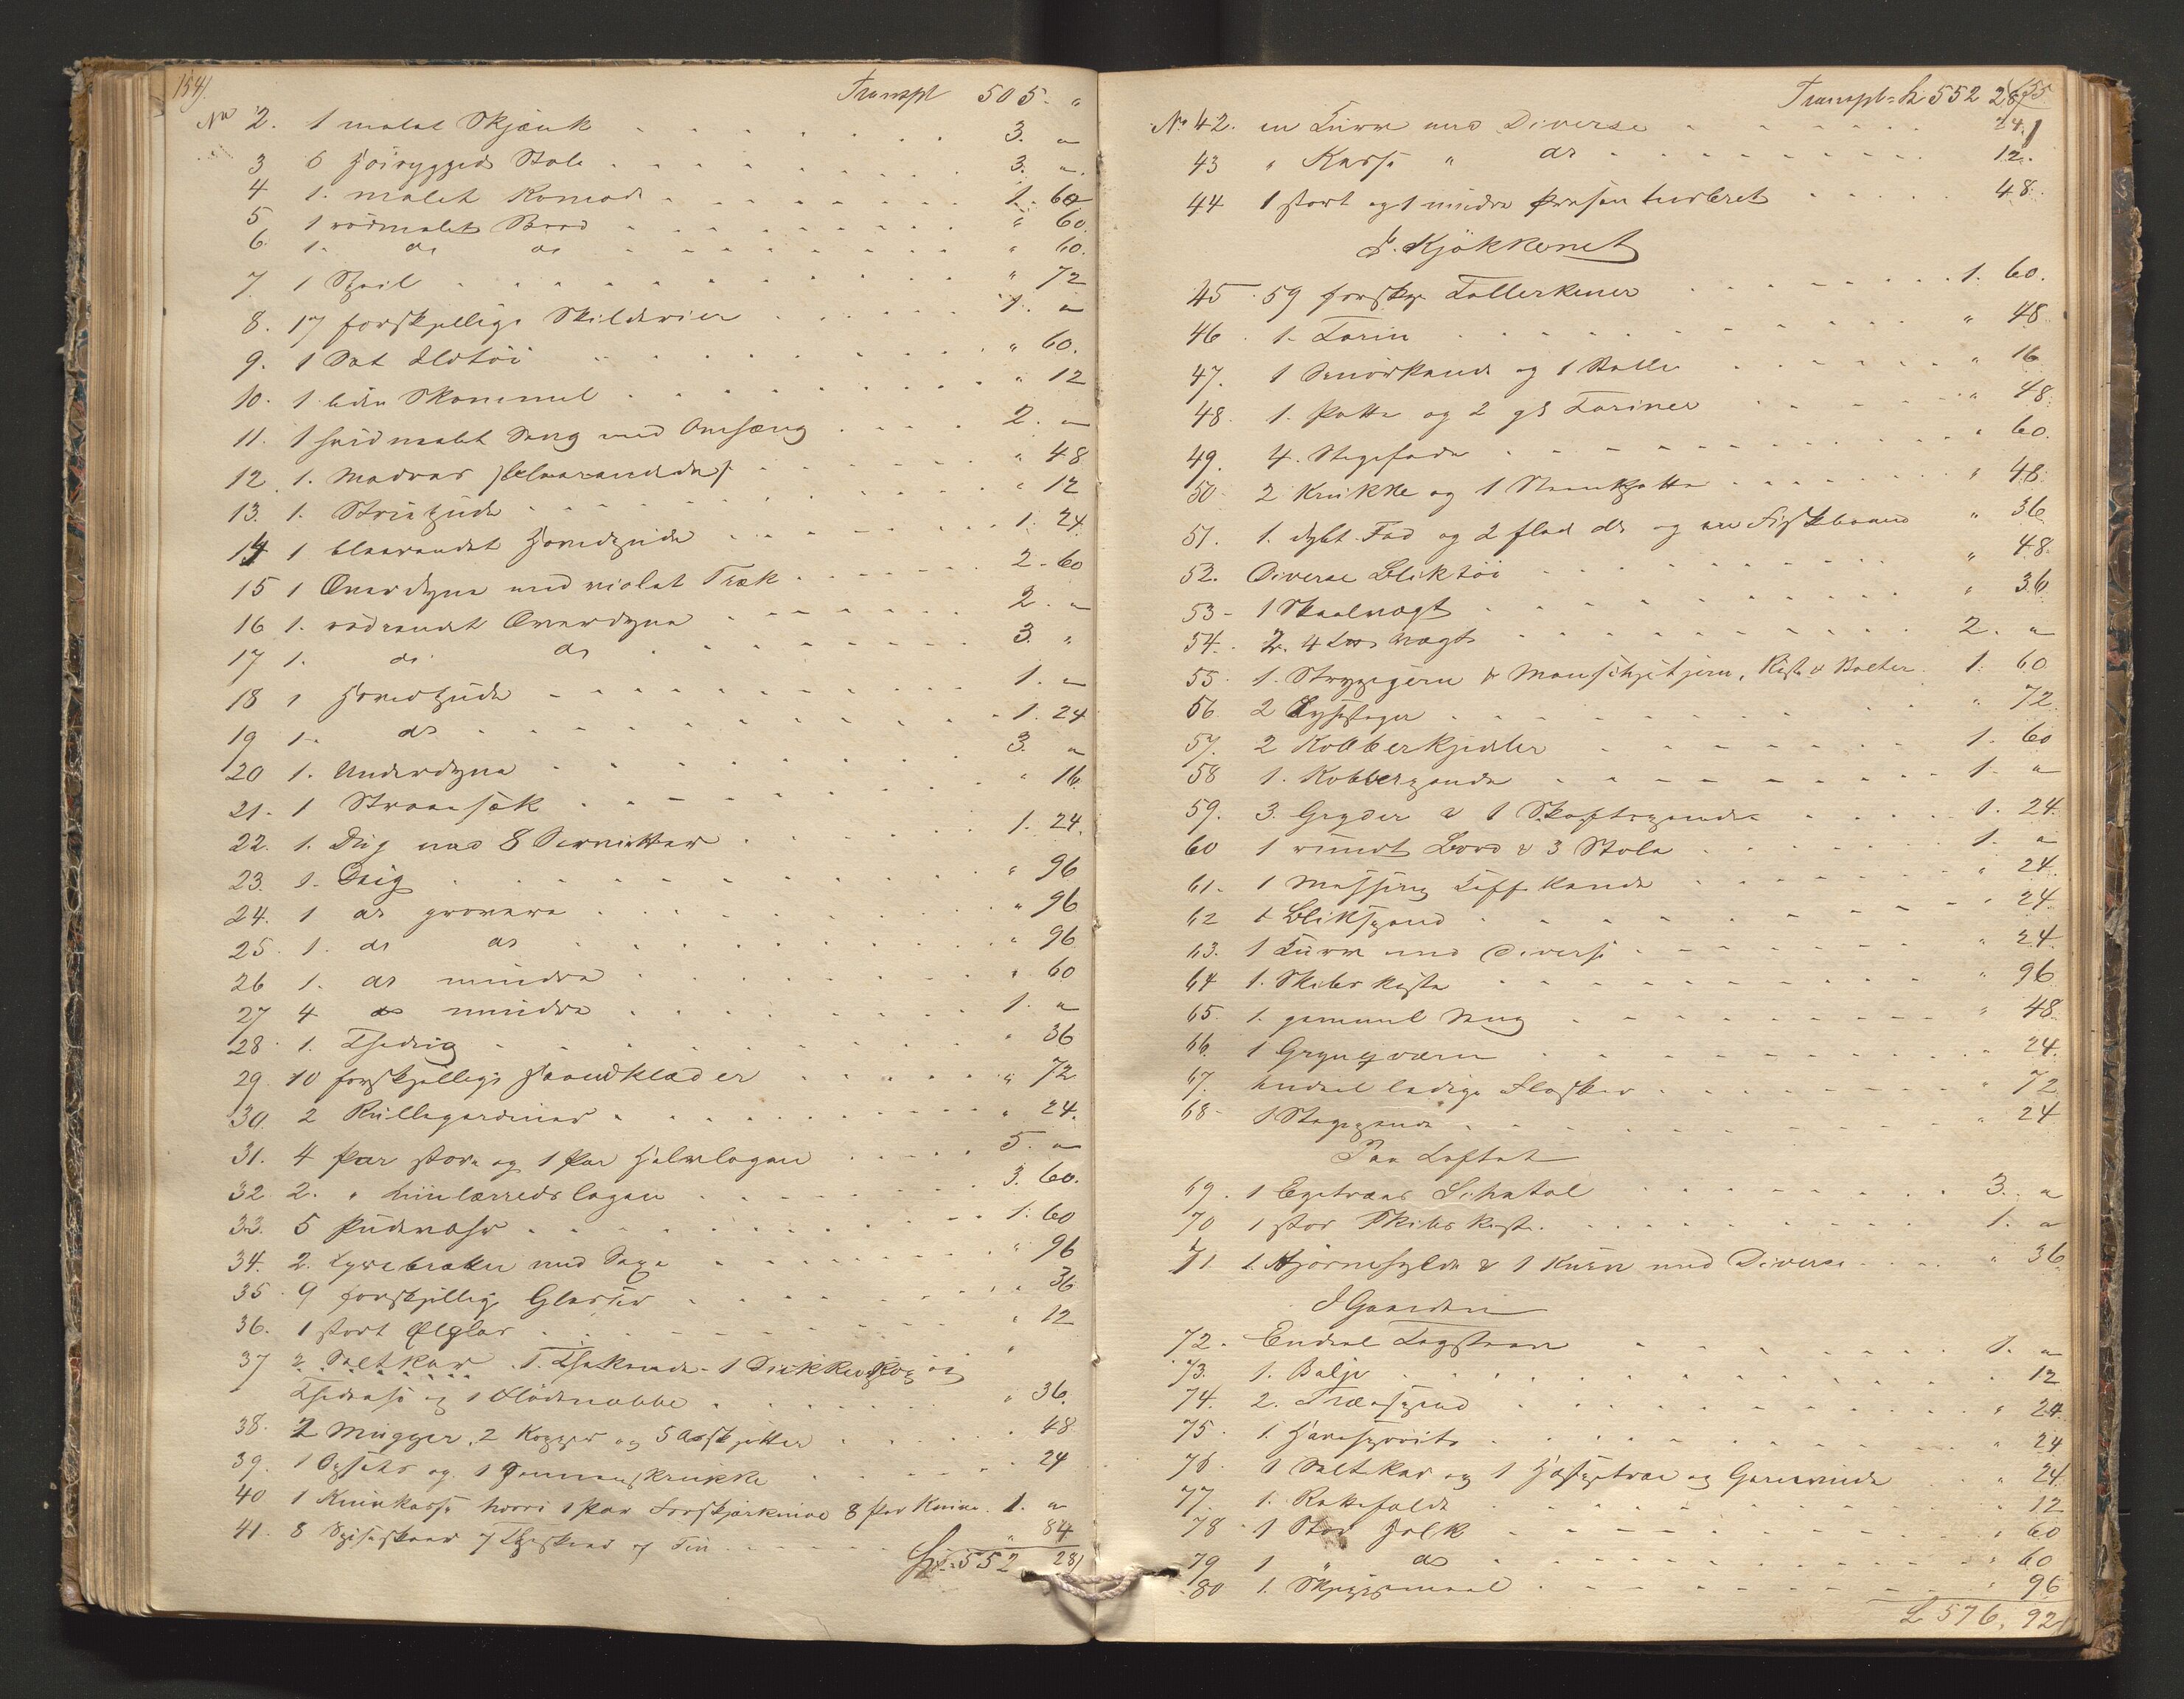 154.
Transpt 505. "
No 2. 1 malet Skjænk 3. "
3 6 høiryggede Stole 3. "
4 1. malet Komode 1. 60
5 1 rødmalet Bord " 60
6. 1. do do " 60.
7. 1 Speil " 72
8. 17 forskjellige Skilderier 1. "
9. 1 Sæt Ildtøi " 60.
10. 1 liden Skammel " 12
11. 1 hvidmalet Seng med Omhæng 2. "
12. 1. Madras blaarandet " 48
13. 1. Striepude " 12
14 1 blaarandet Hovedpude 1. 24
15 1 Overdyne med violet Træk 2. 60
16 1. rødrandet Overdyne 2. "
17 1. do do 3. "
18 1 Hovedpude 1. "
19 1. do 1. 24
20 1. Underdyne 3. "
21. 1 Straasæk " 16
22. 1. Dug med 8 Servietter 1. 24.
23. 1. Dug " 96
24. 1 do grovere " 96
25. 1. do do " 96
26 1. do mindre " 60
27 4 do mindre 1. "
28. 1. Thedug " 36
29. 10 forskjellige Haandklæder " 72
30. 2 Rullegardiner " 24.
31. 4 Par store og 1 Par Halvlagen 5. "
32. 2. " Linlærredslagen 3. 60.
33. 5 Pudevahr 1. 60
34. 2. Lysebrikker med Saxe " 96
35. 9 forskjellige Glasser " 36
36. 1 stort Ølglas " 12
37 2. Saltkar. 1. Thekande 1 Sukkerkop og "
Thedaase og 1 Flødenæbbe " 36.
38. 2 Mugger, 2 Kopper og 5 Asietter " 48
39. 1 Opsats og 1 Krukke " 24
40 1 Knivkasse hvori 1 Par Forskjærknive 8 Par Knive 1. "
41. 8 Spiseskeer 7 Theskeer af Tin " 84
Sp. 552 28
Transpt. L 552 28 155
No 42. en Kurv med Diverse 24.
43 " Kasse " do 12.
44 1 stort og 1 mindre Præsenteerbret 48.
I Kjøkkenet
45 59 forskj. Tallerkener 1. 60.
46. 1. Terin " 48
47. 1 Smørkande og 1 Bolle " 16
48. 1. Potte og 2 gl Teriner " 48
49. 4. Stegefade " 60.
50. 2 Krukke og 1 Steenpotte " 48.
51. 1. dybt Fad og 2 flad do og en Fiskebaand " 36
52. Diverse Bliktøi " 48.
53. 1 Skaalvægt " 36
54. 2. 4 Lods Vægt 2. "
55. 1. Strygejern & Manschetjern, Rist & Bolter 1. 60
56. 2 Lysestager " 72
57. 2 Kobberkjedler 1. 60
58 1. Kobberpande 1. "
59. 3. Gryder & 1 Skaftepande 1. 24.
60 1 rundt Bord & 3 Stole 1. "
61. 1 Messing Kaffekande " 24.
62 1 Blikspand " 24.
63. 1 Kurv med Diverse " 24.
64 1. Skibskiste " 96
65. 1. gammel Seng " 48
66. 1 Grynqværn " 24.
67. Endeel ledige Flasker " 72
68. 1 Stegepande " 24
Paa Loftet
69. 1 Egetræes Schatol 3. "
70 1 stor Skibskiste 1. "
71 1. Hjørnehylde & 1 Kurv med Diverse " 36
I Gaarden
72. Endeel Tagsteen 1. "
73. 1. Balje " 12
74. 2. Træespand " 24.
75. 1. " 24
76. 1 Saltkar og 1 og Garnvinde " 24.
77. 1. Rottefælde " 12
78. 1 Stor Holk " 60
79. 1 " do " 60
80 1. " 96
L 576. 92